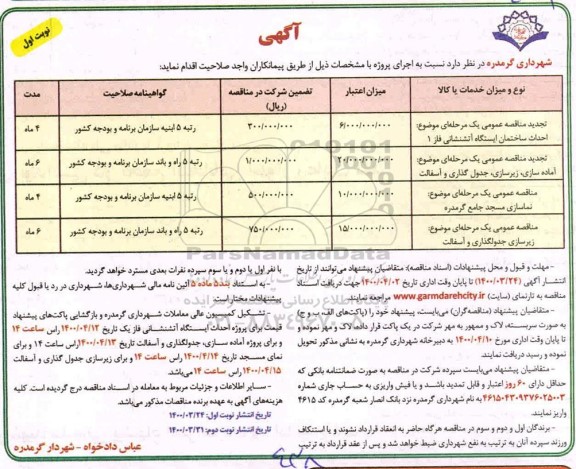 نوبت اول
آگهی
شهرداری گرمدره در نظر دارد نسبت به اجرای پروژه با مشخصات ذیل از طریق پیمانکاران واجد صلاحیت اقدام نماید:
نوع و میزان خدمات یا کالا | میزان اعتبار | تضمین شرکت در مناقصه (ریال) | گواهینامه صلاحیت | مدت
تجدید مناقصه عمومی یک مرحله‌ای موضوع: احداث ساختمان ایستگاه آتشنشانی فاز ۱ | ۶/۰۰۰/۰۰۰/۰۰۰ | ۳۰۰/۰۰۰/۰۰۰ | رتبه ۵ ابنیه سازمان برنامه و بودجه کشور | ۴ ماه
تجدید مناقصه عمومی یک مرحله‌ای موضوع: آماده سازی، زیرسازی، جدول گذاری و آسفالت | ۲۰/۰۰۰/۰۰۰/۰۰۰ | ۱/۰۰۰/۰۰۰/۰۰۰ | رتبه ۵ راه و باند سازمان برنامه و بودجه کشور | ۶ ماه
مناقصه عمومی یک مرحله‌ای موضوع: نماسازی مسجد جامع گرمدره | ۱۰/۰۰۰/۰۰۰/۰۰۰ | ۵۰۰/۰۰۰/۰۰۰ | رتبه ۵ ابنیه سازمان برنامه و بودجه کشور | ۴ ماه
مناقصه عمومی یک مرحله‌ای موضوع: زیرسازی جدولگذاری و آسفالت | ۱۵/۰۰۰/۰۰۰/۰۰۰ | ۷۵۰/۰۰۰/۰۰۰ | رتبه ۵ راه و باند سازمان برنامه و بودجه کشور | ۶ ماه
ParsNamadData
- مهلت و قبول و محل پیشنهادات (اسناد مناقصه): متقاضیان پیشنهاد می‌توانند از تاریخ
انتشار آگهی (۱۴۰۰/۰۳/۲۴) تا پایان وقت اداری تاریخ ۱۴۰۰/۰۴/۰۳ جهت دریافت اسناد
مناقصه به تارنمای (سایت) www.garmdarehcity.ir مراجعه نمایند.
- متقاضیان پیشنهاد (مناقصه‌گران) می‌بایست، پیشنهاد خود را (پاکت‌های الف ب و ج)
به صورت سربسته، لاک و ممهور به مهر شرکت در یک پاکت قرار داده، لاک و مهر نموده و
تا پایان وقت اداری مورخ ۱۴۰۰/۰۴/۱۰ به دبیرخانه شهرداری گرمدره به نشانی مذکور تحویل
نموده و رسید دریافت نمایند.
- متقاضیان پیشنهاد می‌بایست سپرده شرکت در مناقصه به صورت ضمانتنامه بانکی که
حداقل دارای ۶۰ روز اعتبار و قابل تمدید باشد و یا فیش واریزی به حساب جاری شماره
۴۶۱۵۰۴۳۰۹۳۷۶۰۲۵۰۰۳ به نام شهرداری گرمدره نزد بانک انصار شعبه گرمدره کد ۴۶۱۵
واریز نمایند.
- برندگان اول و دوم و سوم در مناقصه هرگاه حاضر به انعقاد قرارداد نشوند و یا استنکاف
ورزند سپرده آنان به ترتیب به نفع شهرداری ضبط خواهد شد و پس از عقد قرارداد به ترتیب
با نفر اول یا دوم و یا سوم سپرده نفرات بعدی مسترد خواهد گردید.
- به استناد بند۵ ماده ۵ آئین نامه مالی شهرداری‌ها، شهرداری در رد یا قبول کلیه
پیشنهادات مختار است.
- تشکیل کمیسیون عالی معاملات شهرداری گرمدره و بازگشایی پاکت‌های پیشنهاد
قیمت برای پروژه احداث ایستگاه آتشنشانی فاز یک تاریخ ۱۴۰۰/۰۴/۱۲ راس ساعت ۱۴
و برای پروژه آماده سازی، جدولگذاری و آسفالت تاریخ ۱۴۰۰/۰۴/۱۳ راس ساعت ۱۴ و برای
نمای مسجد تاریخ ۱۴۰۰/۴/۱۴ راس ساعت ۱۴ و برای زیرسازی جدول گذاری و آسفالت
۱۴۰۰/۰۴/۱۵ راس ساعت ۱۴ می‌باشد.
- سایر اطلاعات و جزئیات مربوط به معامله در اسناد مناقصه درج گردیده است. کلیه
هزینه‌های آگهی به عهده برنده مناقصات مذکور می‌باشد.
تاریخ انتشار نوبت اول: ۱۴۰۰/۰۳/۲۴
تاریخ انتشار نوبت دوم: ۱۴۰۰/۰۳/۳۱
عباس دادخواه - شهردار گرمدره